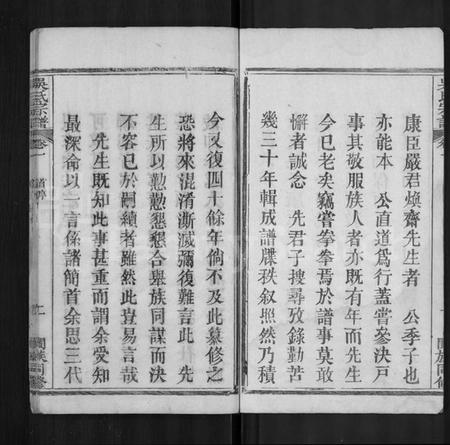 康臣嚴君煥齋先生者　公季子也
亦能本　公直道爲行蓋嘗參決戸
事其敬服族人者亦既有年而先生
今已老矣竊嘗拳拳焉於譜事莫敢
懈者誠念　先君子搜尋攷錄勤苦
幾三十年輯成譜牒秩叙照然乃積
今又復四十餘年倘不及此纂修之
恐將來混淆澌滅彌復難言此　先
生所以懃懃懇懇合舉族同謀而決
不容已於嗣續者雖然此豈易言哉
　先生既知此事甚重而謂余受知
最深命以一言係諸簡首余思三代
吳氏宗譜
卷一
闔族同修